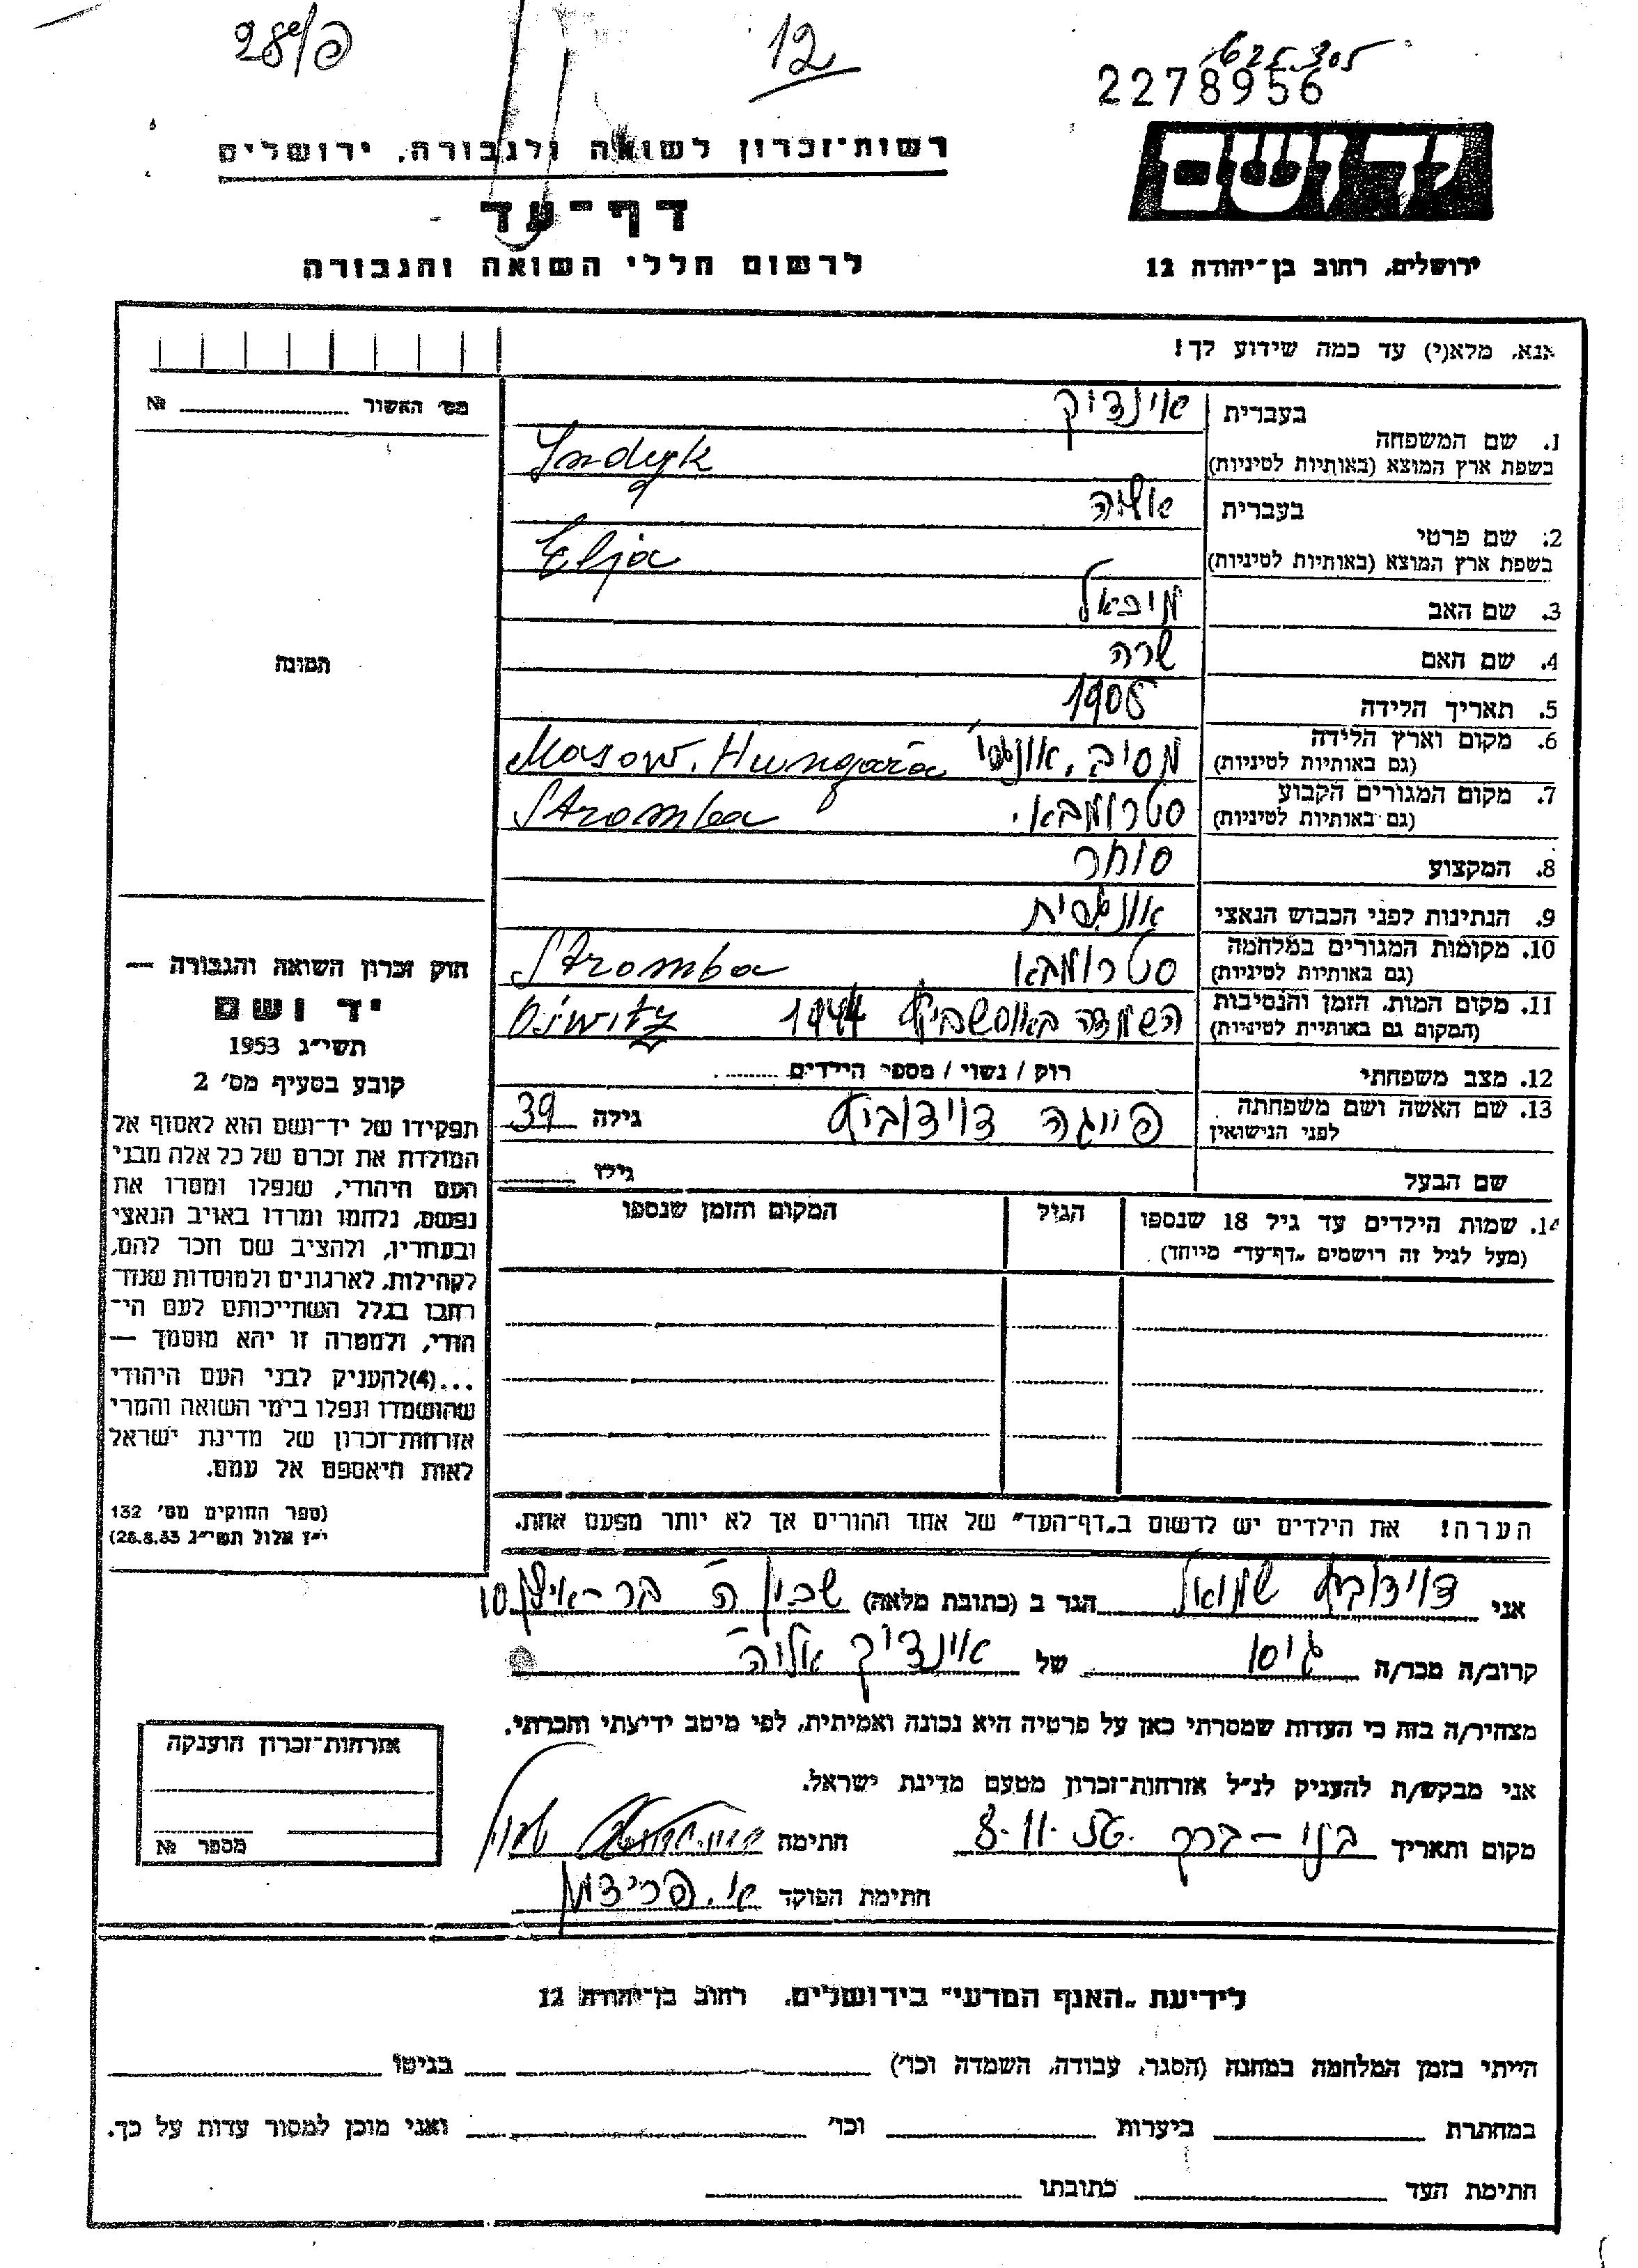 28/פ
12
625305
2278956
רשות־זכרון לשואה ולגבורה, ירושלים
דף־עד
לרשום חללי השואה והגבורה
ד ושם
ירושלים, רחוב בן־יהודה 12
אנא, מלא(י) עד כמה שידוע לך!
מס׳ האשור № 
1. שם המשפחה בעברית אינדיק
בשפת ארץ המוצא (באותיות לטיניות) Indyk
2. שם פרטי בעברית אליה
בשפת ארץ המוצא (באותיות לטיניות) Elja
3. שם האב מיכאל
4. שם האם שרה
5. תאריך הלידה 1905
6. מקום וארץ הלידה
(גם באותיות לטיניות) Masow, Hungara
7. מקום המגורים הקבוע סטרומבא.
(גם באותיות לטיניות) Stromba
8. המקצוע סוחר
9. הנתינות לפני הכבוש הנאצי אונגרית
10. מקומות המגורים במלחמה סטרומבא
(גם באותיות לטיניות) Stromba
11. מקום המות, הזמן והנסיבות השמדה באושביץ 1944
(המקום גם באותיות לטיניות) Oświtz
12. מצב משפחתי רוק / נשוי / מספר הילדים
13. שם האשה ושם משפחתה פייגה דוידוביץ גילה 39
לפני הנישואין
שם הבעל גילו
14. שמות הילדים עד גיל 18 שנספו הגיל המקום והזמן שנספו
(מעל לגיל זה רושמים „דף־עד״ מיוחד)
התמונה
חוק זכרון השואה והגבורה —
יד ושם
תשי״ג 1953
קובע בסעיף מס׳ 2
תפקידו של יד־ושם הוא לאסוף אל
המולדת את זכרם של כל אלה מבני
העם היהודי, שנפלו ומסרו את
נפשם, נלחמו ומרדו באויב הנאצי
ובעוזריו, ולהציב שם וזכר להם,
לקהילות, לארגונים ולמוסדות שנח־
רבו בגלל השתייכותם לעם הי־
הודי, ולמטרה זו יהא מוסמך —
...(4)להעניק לבני העם היהודי
שהושמדו ונפלו בימי השואה והמרי
אזרחות־זכרון של מדינת ישראל
לאות היאספם אל עמם.
(ספר החוקים מס׳ 132
י״ז אלול תשי״ג 28.8.53)
הערה! את הילדים יש לרשום ב„דף־העד״ של אחד ההורים אך לא יותר מפעם אחת.
אני דוידוביץ שמואל הגר ב (כתובת מלאה) שכון ה בר-אילן 10
קרוב/ה מכר/ה גיסו של אינדיק אליה
מצהיר/ה בזה כי העדות שמסרתי כאן על פרטיה היא נכונה ואמיתית, לפי מיטב ידיעתי והכרתי.
אני מבקש/ת להעניק לנ״ל אזרחות־זכרון מטעם מדינת ישראל.
מקום ותאריך בני-ברק 8.11.56 חתימה
חתימת הפוקד י. פרידמן
אזרחות־זכרון הוענקה
מספר №
לידיעת „האגף המדעי״ בירושלים, רחוב בן־יהודה 12
הייתי בזמן המלחמה במחנה (הסגר, עבודה, השמדה וכו׳) בגיטו
במחתרת ביערות וכו׳ ואני מוכן למסור עדות על כך.
חתימת העד כתובתו